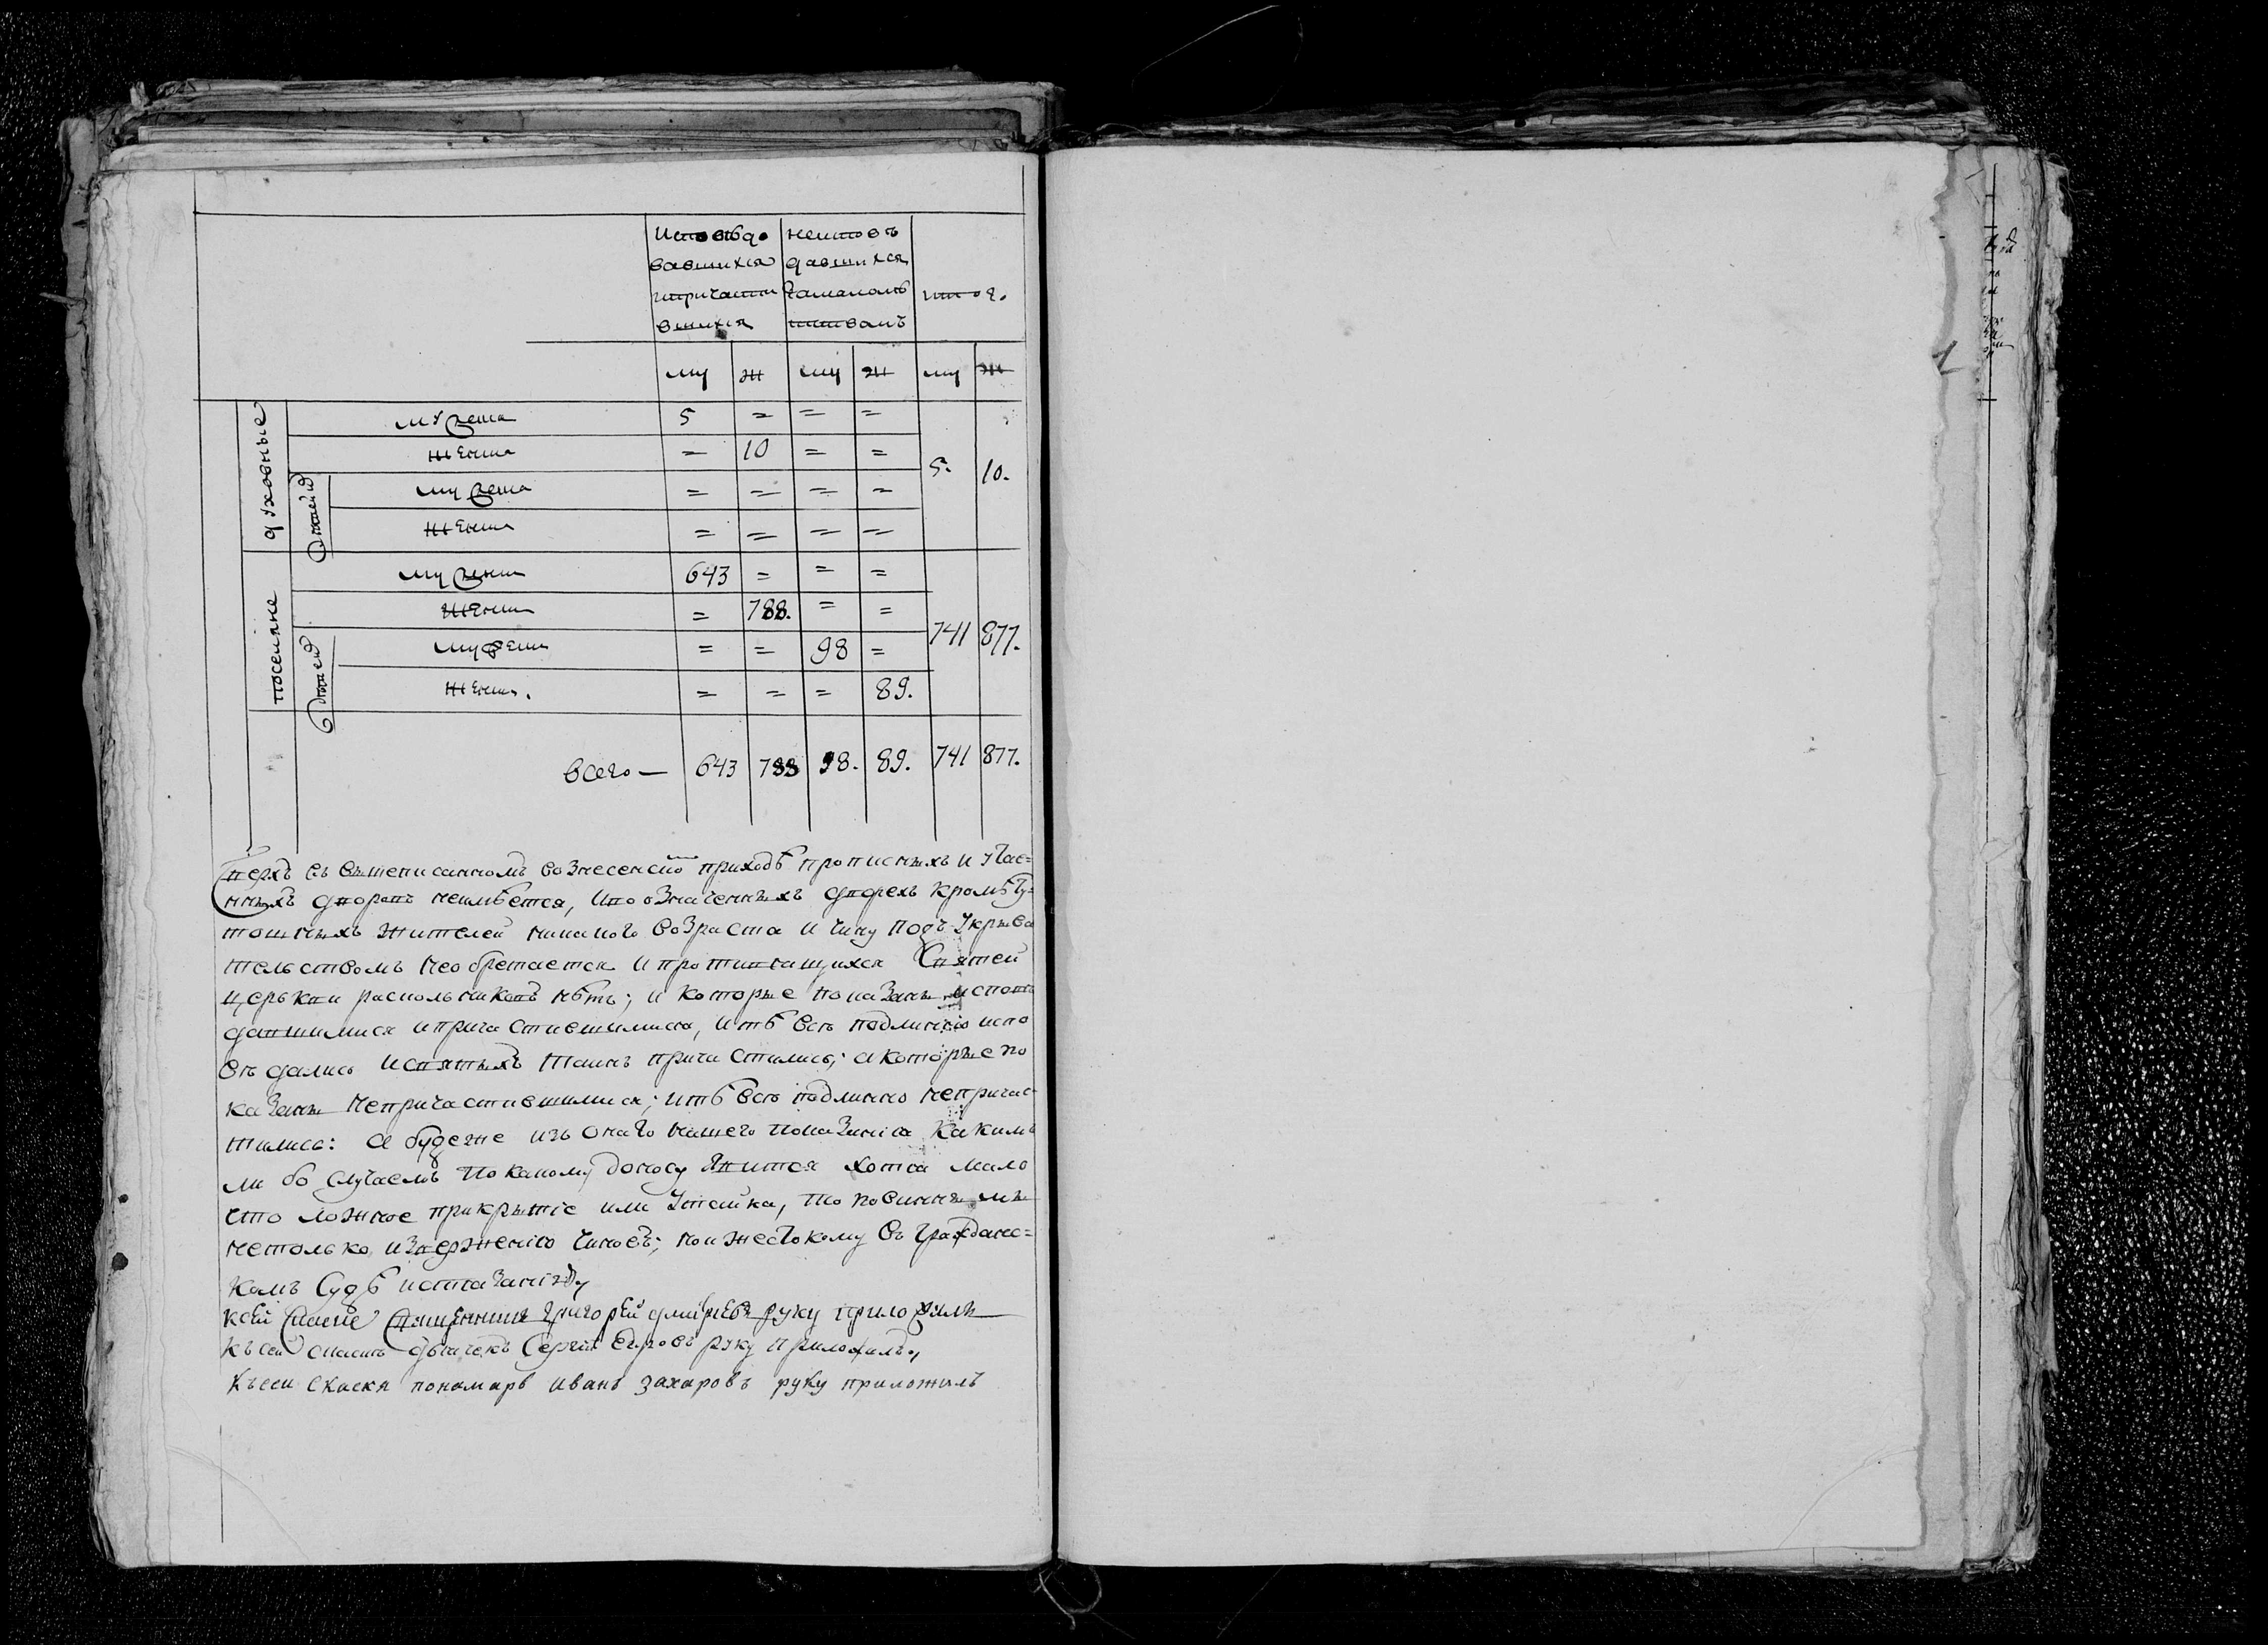 исповѣдо неисповѣ
вавшихся давшихся
ипричасти замалолѣ
вшихся итог.
му ж му ж му ж
духовные мужеска 5 = = =
женска = 10 = = 5. 10.
мужеска = = = =
женска = = = =
поселяне мужеска 643 = = =
женска = 788. = = 741 877.
мужеска = = 98 =
женска. = = = 89.
всего — 643 788 98. 89. 741 877.
сверхъ въ вышеписанномъ вознесенско приходѣ прописныхъ и учас=
дворовъ неимѣется, ипоозначеннымъ дворехъ кромѣ ту=
тошныхъ жителей никакого возраста и чину подъ укрыва
тельствомъ необретается ипротивящихся святей
церькви раскольниковъ нѣтъ; и которые показаны исповѣ
давшимися ипричастившимися, итѣ всѣ подлинно испо
вѣдались исвятыхъ таинъ причастились; акоторые по
казаны непричастившимися; итѣ всѣ подлинно непричас
тились: а будеже изъ онаго нашего показания какимъ
ли бо случаемъ покакому доносу явится хотя мало
что ложное прикрытіе или утайка, то повинны мы
нетолько изверженію чиновъ; ноижестокому въ граждансс=
комъ судѣ истязанію,
ксей скаске священникъ григорей дмитриевъ руку приложилъ
къ сей скаскѣ дьячекъ Сергѣй Егоровъ руку приложилъ,
Късеи скаски пономарь иванъ захаровъ руку приложилъ
1